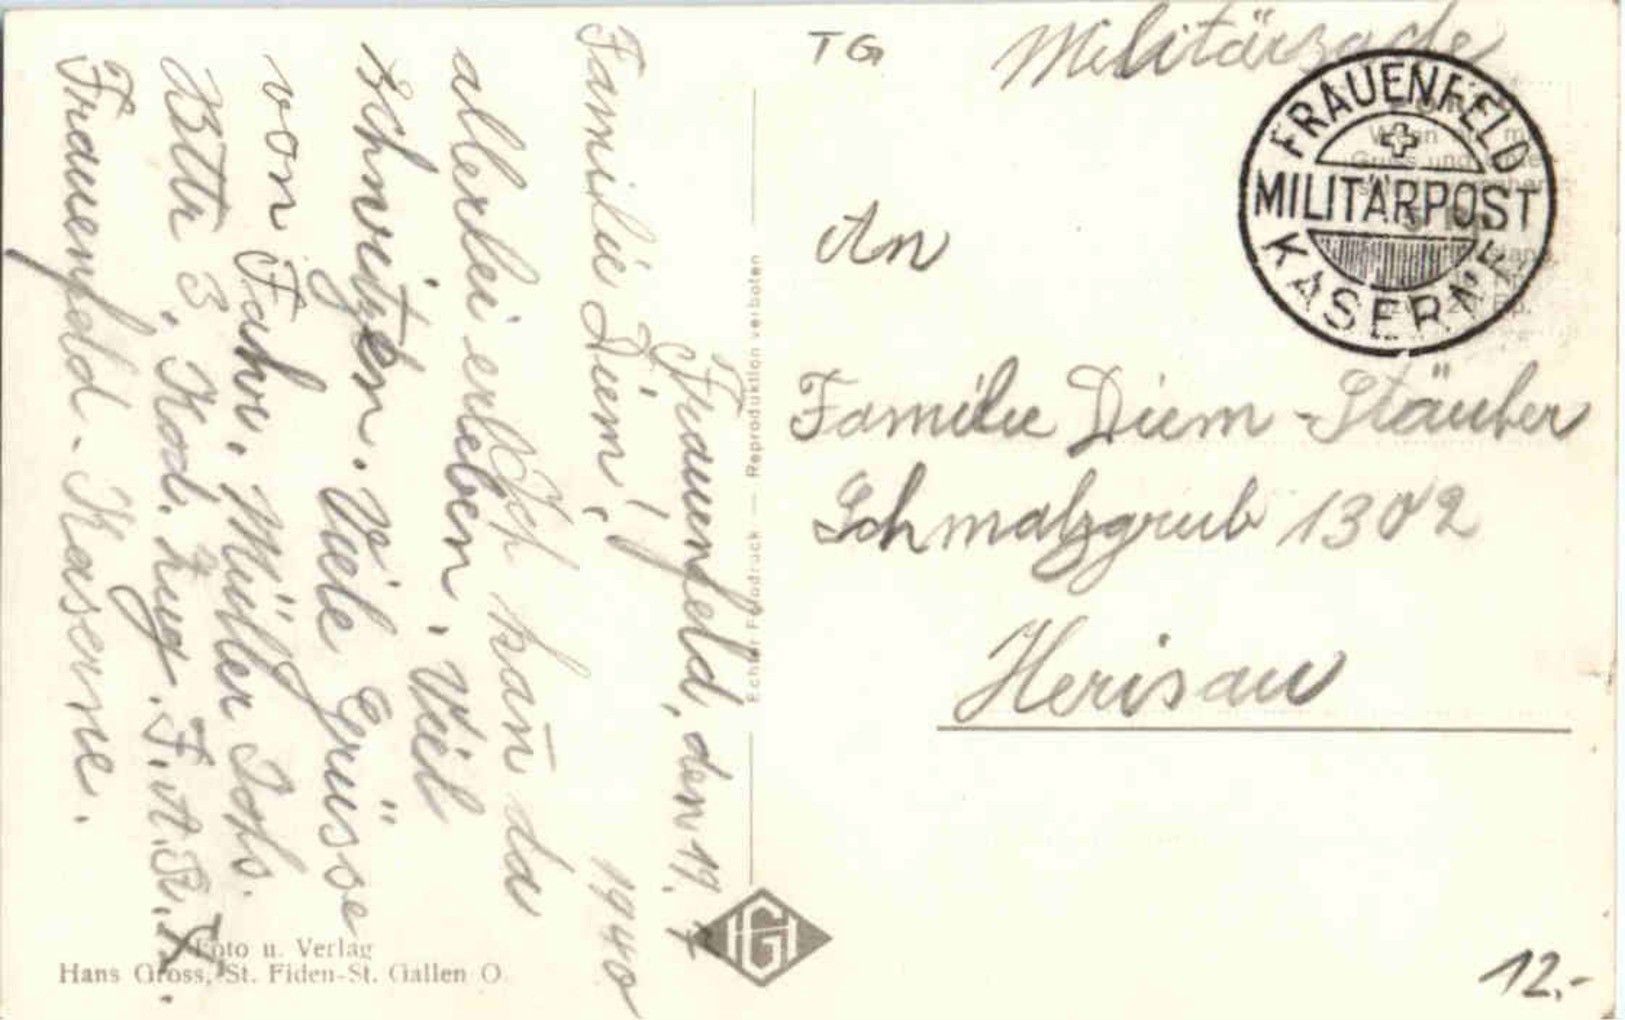 TG
Militärsache
FRAUENFELD
MILITÄRPOST
KASERNE
An
Familie Diem-Stäuber
Schmalzgrub 1302
Herisau
Frauenfeld, den 19. 7
1940
Familie Diem!
Ich kan̄ da
allerlei erleben, Viel
Schwitzen. Viele Grüsse
von Fahr. Müller Johs.
Bttr 3, Kod. Zug. F.A.R.
Frauenfeld-Kaserne.
Echter Fotodruck — Reproduktion verboten
IGI
Foto u. Verlag
Hans Gross, St. Fiden-St. Gallen O.
12.-